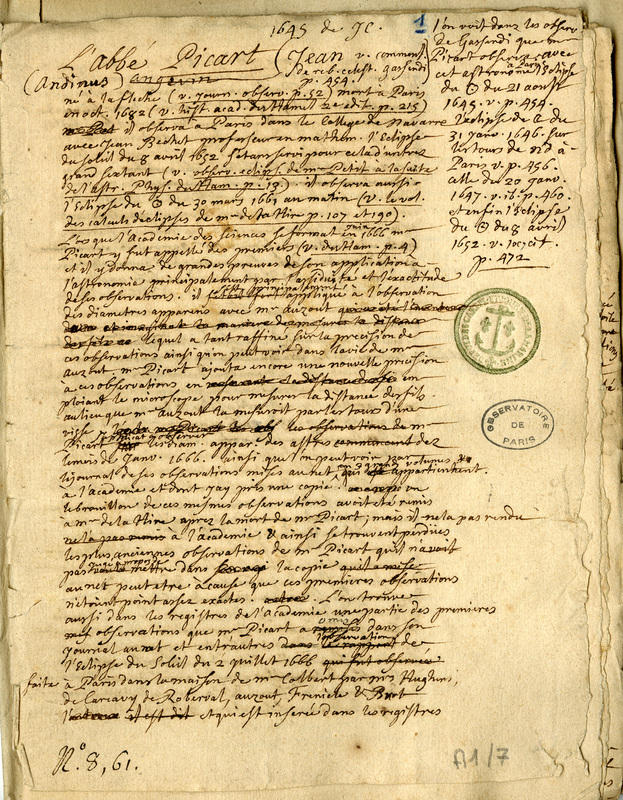 1645 de JC.
1
L'abbé Picart (Jean v. comment.
de reb. eccles. gassendi
p. 454.
(Andinus) angevin
né a la fleche (v. journ. observ. p. 52) mort a Paris
en oct. 1682 (v. hist. acad. du Hamel 2e edit. p. 215)
il observa a Paris dans le College de Navarre
avec Jean Bechet professeur en mathem. l'Eclipse
du soleil du 8 avril 1652 s'etant servi pour cela d'un tres
grand sextant (v. observ. eclips. de mr Petit a la suite
de l'astr. Phys. du Ham. p. 13). il observa aussi
l'Eclipse du ☉ du 30 mars 1661 au matin (v. le vol.
des calculs d'eclipses de mr de la Hire p. 107 et 190).
Lorsque l'Académie des Sciences se forma en juin 1666 mr
Picart y fut appellé des premiers (v. du Ham. p. 4)
et il y donna de grandes preuves de son application a
l'astronomie principalement par l'assiduité et l'exactitude
de ses observations. il principalement appliqué a l'observation
des diametres apparens avec mr Auzout
lequel a tant raffiné sur la precision de
ces observations ainsi qu'on peut voir dans la vie de mr
auzout. mr Picart ajouta encore une nouvelle précision
a ces observations en en
ploiant le microscope pour mesurer la distance des fils
au lieu que mr Auzout la mesuroit par les tours d'une
visse les observations de mr
Picart les diam. appar. des astres commencent dez
le mois de Janv. 1666. ainsi que l'on peut voir par
le journal de ses observations mises au net, qui appartiennent
a l'Academie et dont j'ay pris une copie. on
le brouillon de ces mesmes observations avoit eté remis
a mr de la Hire apres la mort de mr Picart, mais il ne l'a pas rendu
a l'académie & ainsi se trouvent perdües
les plus anciennes observations de mr Picart qu'il n'avoit
pas mettre dans la copie
au net peut etre a cause que ces premieres observations
n'etoient point assez exactes. L'on trouve
aussi dans les registres de l'Academie une partie des premieres
observations que mr Picart a omis dans son
journal au net et entr'autres l'observation de
l'Eclipse du Soleil du 2 juillet 1666 qui fut observée
faite a Paris dans la maison de mr Colbert par mrs Hughens,
de Carcavy de Roberval, auzout Frenicle & Buot
et qui est inserée dans les registres
l'on voit dans les observ.
de Gassendi que mr
Picart observa avec
cet astronome a Paris l'Eclipse
du ☉ du 21 aoust
1645. v. p. 454.
l'eclipse de ☾ du
31 janv. 1646. sur
les tours de N.D. a
Paris v. p. 456.
celle du 20 janv.
1647. v. ib. p. 460.
et enfin l'Eclipse
du ☉ du 8 avril
1652. v. loc. cit.
p. 472
OBSERVATOIRE
DE
PARIS
N.o 8, 61.
A1/7